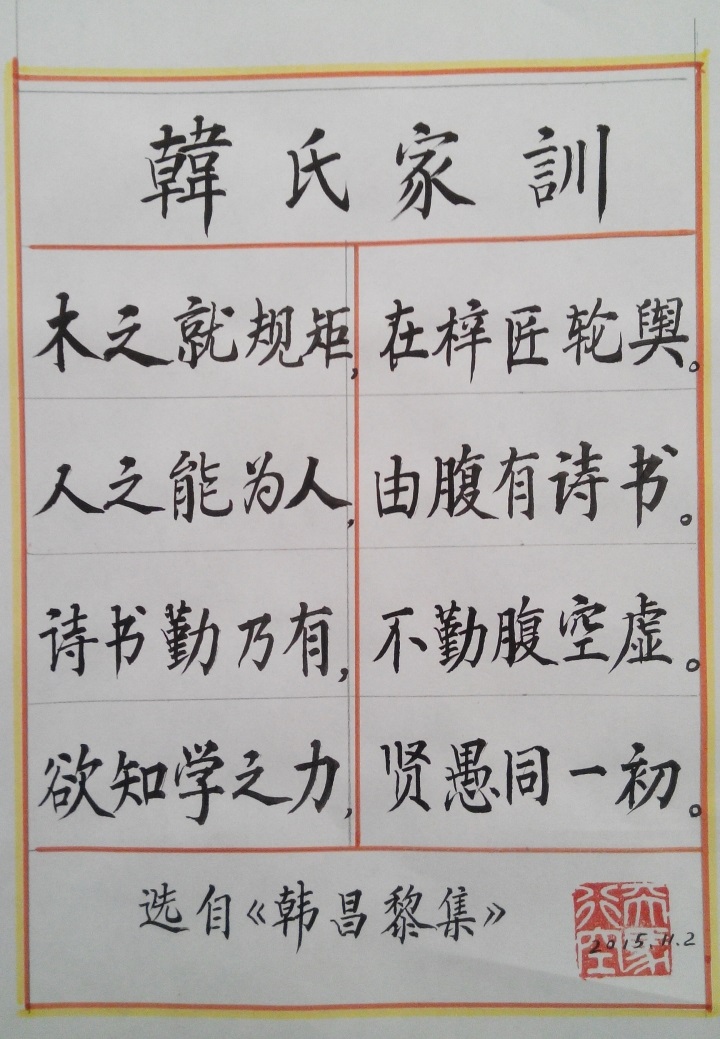 韓氏家訓
木之就规矩，在梓匠轮舆。
人之能为人，由腹有诗书。
诗书勤乃有，不勤腹空虚。
欲知学之力，贤愚同一初。
选自《韩昌黎集》
2015.11.2